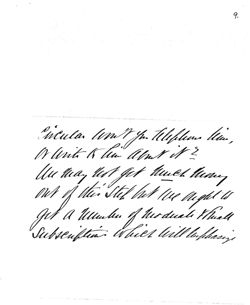 9.
Circular. Won't you telephone him,
or write to him about it?
We may not get much money
out of this step but we ought to
get a number of moderate & small
subscriptions which will